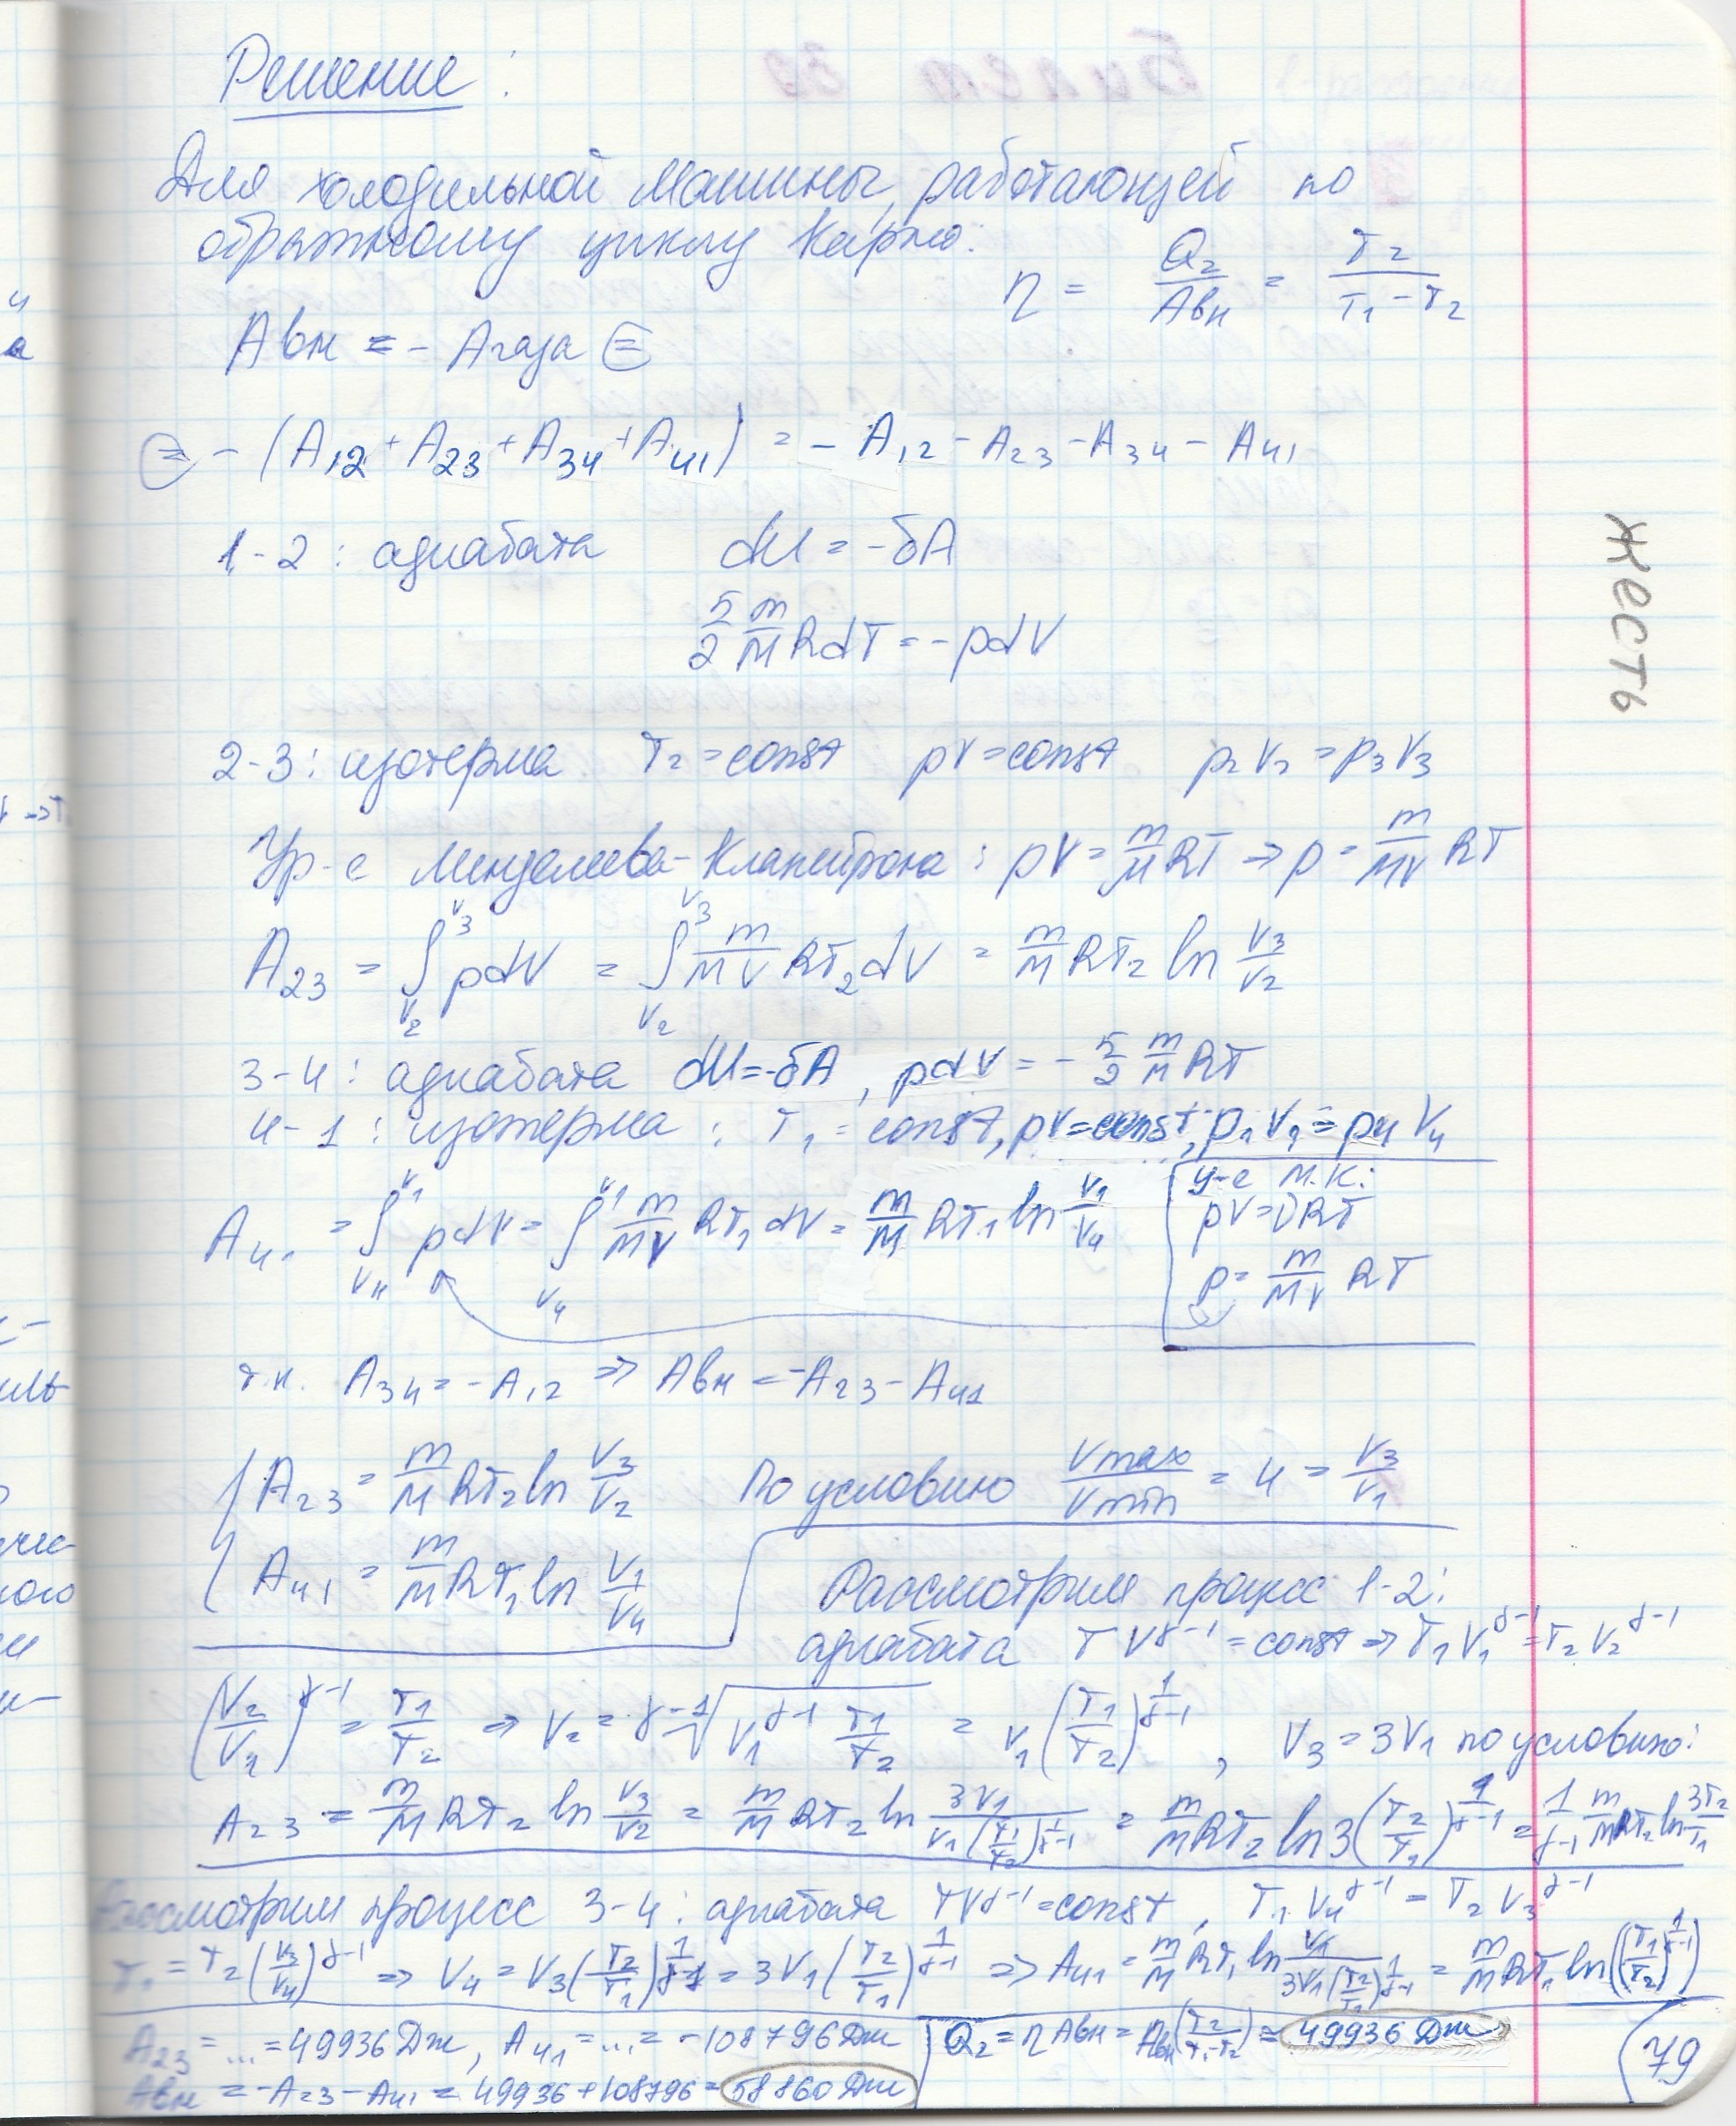 Решение:
Для холодильной машины, работающей по
обратному циклу Карно: η = Q₂/Aвн = T₂/(T₁-T₂)
Aвн = - Aгаза ⊜
⊜ - (A₁₂ + A₂₃ + A₃₄ + A₄₁) = - A₁₂ - A₂₃ - A₃₄ - A₄₁
1-2: адиабата dU = -δA
5/2 m/M R dT = - p dV
2-3: изотерма T₂ = const pV = const p₂V₂ = p₃V₃
Ур-е Менделеева-Клапейрона: pV = m/M RT ⇒ p = m/(MV) RT
A₂₃ = ∫_{V₂}^{V₃} p dV = ∫_{V₂}^{V₃} m/(MV) RT₂ dV = m/M RT₂ ln V₃/V₂
3-4: адиабата dU = -δA, p dV = - 5/2 m/M RT
4-1: изотерма: T₁ = const, pV = const, p₁V₁ = p₄V₄
A₄₁ = ∫_{V₄}^{V₁} p dV = ∫_{V₄}^{V₁} m/(MV) RT₁ dV = m/M RT₁ ln V₁/V₄
у-е М.К:
pV = νRT
p = m/(MV) RT
т.к. A₃₄ = - A₁₂ ⇒ Aвн = - A₂₃ - A₄₁
A₂₃ = m/M RT₂ ln V₃/V₂ По условию Vmax/Vmin = 4 = V₃/V₁
A₄₁ = m/M RT₁ ln V₁/V₄
Рассмотрим процесс 1-2:
адиабата TV^{γ-1} = const ⇒ T₁V₁^{γ-1} = T₂V₂^{γ-1}
(V₂/V₁)^{γ-1} = T₁/T₂ ⇒ V₂ = ^{γ-1}√(V₁^{γ-1} T₁/T₂) = V₁(T₁/T₂)^{1/(γ-1)}, V₃ = 3V₁ по условию:
A₂₃ = m/M RT₂ ln V₃/V₂ = m/M RT₂ ln 3V₁/(V₁(T₁/T₂)^{1/(γ-1)}) = m/M RT₂ ln 3(T₂/T₁)^{1/(γ-1)} = 1/(γ-1) m/M RT₂ ln 3T₂/T₁
Рассмотрим процесс 3-4: адиабата TV^{γ-1} = const, T₁V₄^{γ-1} = T₂V₃^{γ-1}
T₁ = T₂(V₃/V₄)^{γ-1} ⇒ V₄ = V₃(T₂/T₁)^{1/(γ-1)} = 3V₁(T₂/T₁)^{1/(γ-1)} ⇒ A₄₁ = m/M RT₁ ln V₁/(3V₁(T₂/T₁)^{1/(γ-1)}) = m/M RT₁ ln((T₁/T₂)^{1/(γ-1)})
A₂₃ = ... = 49936 Дж, A₄₁ = ... = -108796 Дж
Aвн = -A₂₃ - A₄₁ = 49936 + 108796 = 58860 Дж
Q₂ = ηAвн = Aвн(T₂/(T₁-T₂)) = 49936 Дж
79
жесть